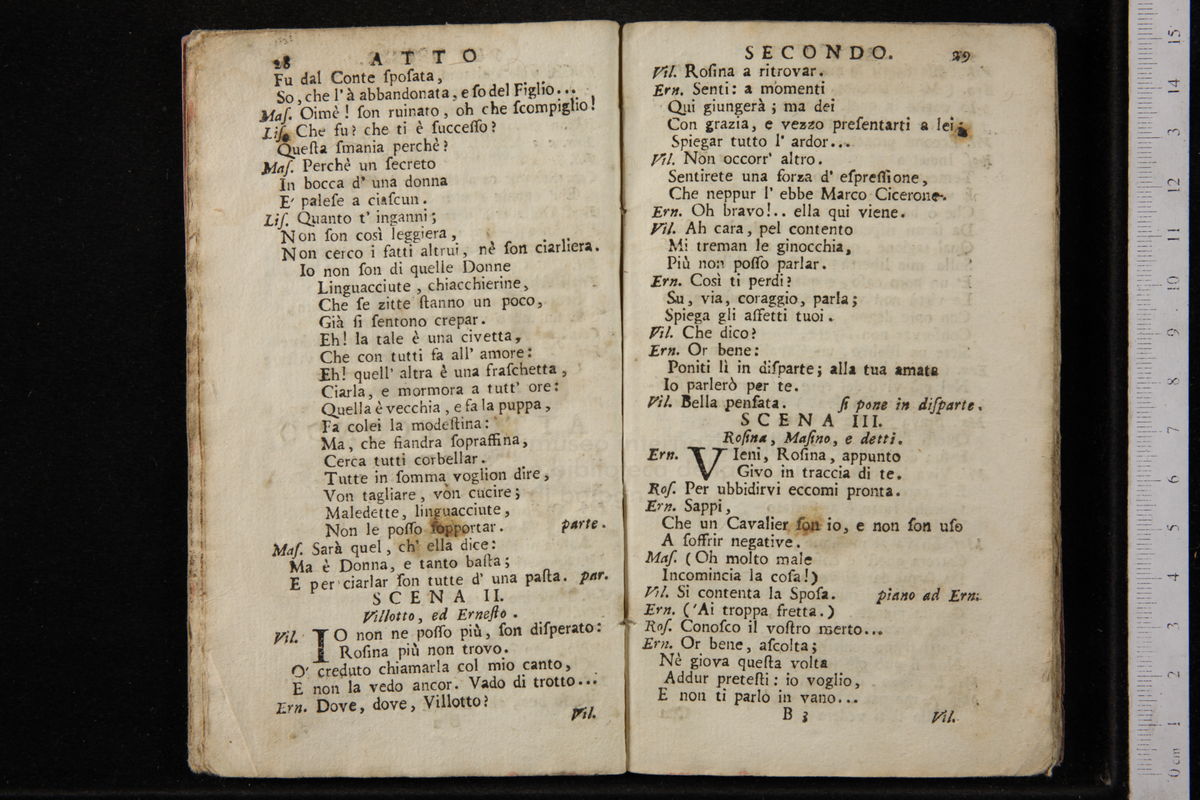 28 ATTO
Fu dal Conte ſpoſata,
So, che l' à abbandonata, e ſo del Figlio...
Maſ. Oimè! ſon ruinato, oh che ſcompiglio!
Liſ. Che fu? che ti è ſucceſſo?
Queſta ſmania perchè?
Maſ. Perchè un ſecreto
In bocca d' una donna
E' paleſe a ciaſcun.
Liſ. Quanto t' inganni;
Non ſon così leggiera,
Non cerco i fatti altrui, nè ſon ciarliera.
Io non ſon di quelle Donne
Linguacciute, chiacchierine,
Che ſe zitte ſtanno un poco,
Già ſi ſentono crepar.
Eh! la tale è una civetta,
Che con tutti fa all' amore:
Eh! quell' altra è una fraſchetta,
Ciarla, e mormora a tutt' ore:
Quella è vecchia, e fa la puppa,
Fa colei la modeſtina:
Ma, che ſiandra ſopraffina,
Cerca tutti corbellar.
Tutte in ſomma voglion dire,
Von tagliare, von cucire;
Maledette, linguacciute,
Non le poſſo ſopportar. parte.
Maſ. Sarà quel, ch' ella dice:
Ma è Donna, e tanto baſta;
E per ciarlar ſon tutte d' una paſta. par.
SCENA II.
Villotto, ed Erneſto.
Vil. IO non ne poſſo più, ſon diſperato:
Roſina più non trovo.
O' creduto chiamarla col mio canto,
E non la vedo ancor. Vado di trotto...
Ern. Dove, dove, Villotto?
Vil.
SECONDO. 29
Vil. Roſina a ritrovar.
Ern. Senti: a momenti
Qui giungerà; ma dei
Con grazia, e vezzo preſentarti a lei;
Spiegar tutto l' ardor...
Vil. Non occorr' altro.
Sentirete una forza d' eſpreſſione,
Che neppur l' ebbe Marco Cicerone.
Ern. Oh bravo!.. ella qui viene.
Vil. Ah cara, pel contento
Mi treman le ginocchia,
Più non poſſo parlar.
Ern. Così ti perdi?
Su, via, coraggio, parla;
Spiega gli affetti tuoi.
Vil. Che dico?
Ern. Or bene:
Poniti lì in diſparte; alla tua amata
Io parlerò per te.
Vil. Bella penſata. ſi pone in diſparte.
SCENA III.
Roſina, Maſino, e detti.
Ern. VIeni, Roſina, appunto
Givo in traccia di te.
Roſ. Per ubbidirvi eccomi pronta.
Ern. Sappi,
Che un Cavalier ſon io, e non ſon uſo
A ſoffrir negative.
Maſ. (Oh molto male
Incomincia la coſa!)
Vil. Si contenta la Spoſa. piano ad Ern.
Ern. ('Ai troppa fretta.)
Roſ. Conoſco il voſtro merto...
Ern. Or bene, aſcolta;
Nè giova queſta volta
Addur preteſti: io voglio,
E non ti parlo in vano...
B 3 Vil.